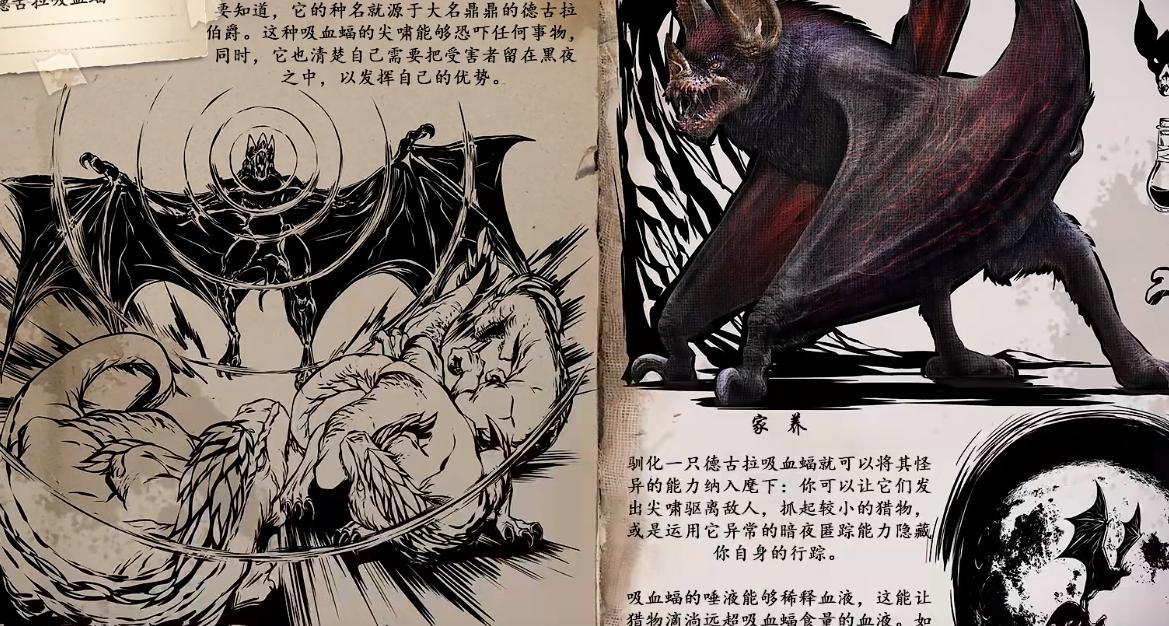 德古拉吸血蝠
要知道，它的种名就源于大名鼎鼎的德古拉
伯爵。这种吸血蝠的尖啸能够恐吓任何事物，
同时，它也清楚自己需要把受害者留在黑夜
之中，以发挥自己的优势。
家养
驯化一只德古拉吸血蝠就可以将其怪
异的能力纳入麾下：你可以让它们发
出尖啸驱离敌人，抓起较小的猎物，
或是运用它异常的暗夜匿踪能力隐藏
你自身的行踪。
吸血蝠的唾液能够稀释血液，这能让
猎物滴淌远超吸血蝠食量的血液。如